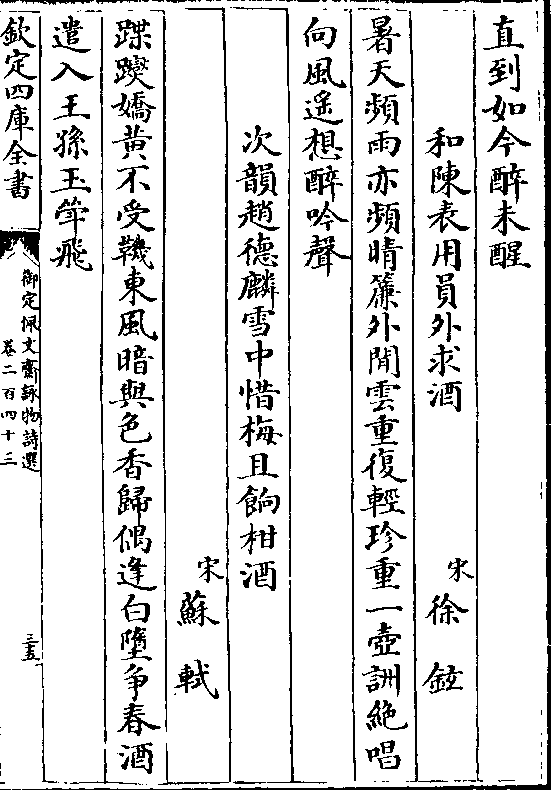 直到如今醉未醒
和陳表用員外求酒
宋徐鉉
暑天頻雨亦頻晴簾外閒雲重復輕珍重一壺詶絶唱
向風遥想醉吟聲
次韻趙德麟雪中惜梅且餉柑酒
宋蘇軾
蹀躞嬌黃不受鞿東風暗與色香歸偶逢白墮争春酒
遣入王孫玉斝飛
欽定四庫全書
御定佩文齋詠物詩選
卷二百四十三
三五